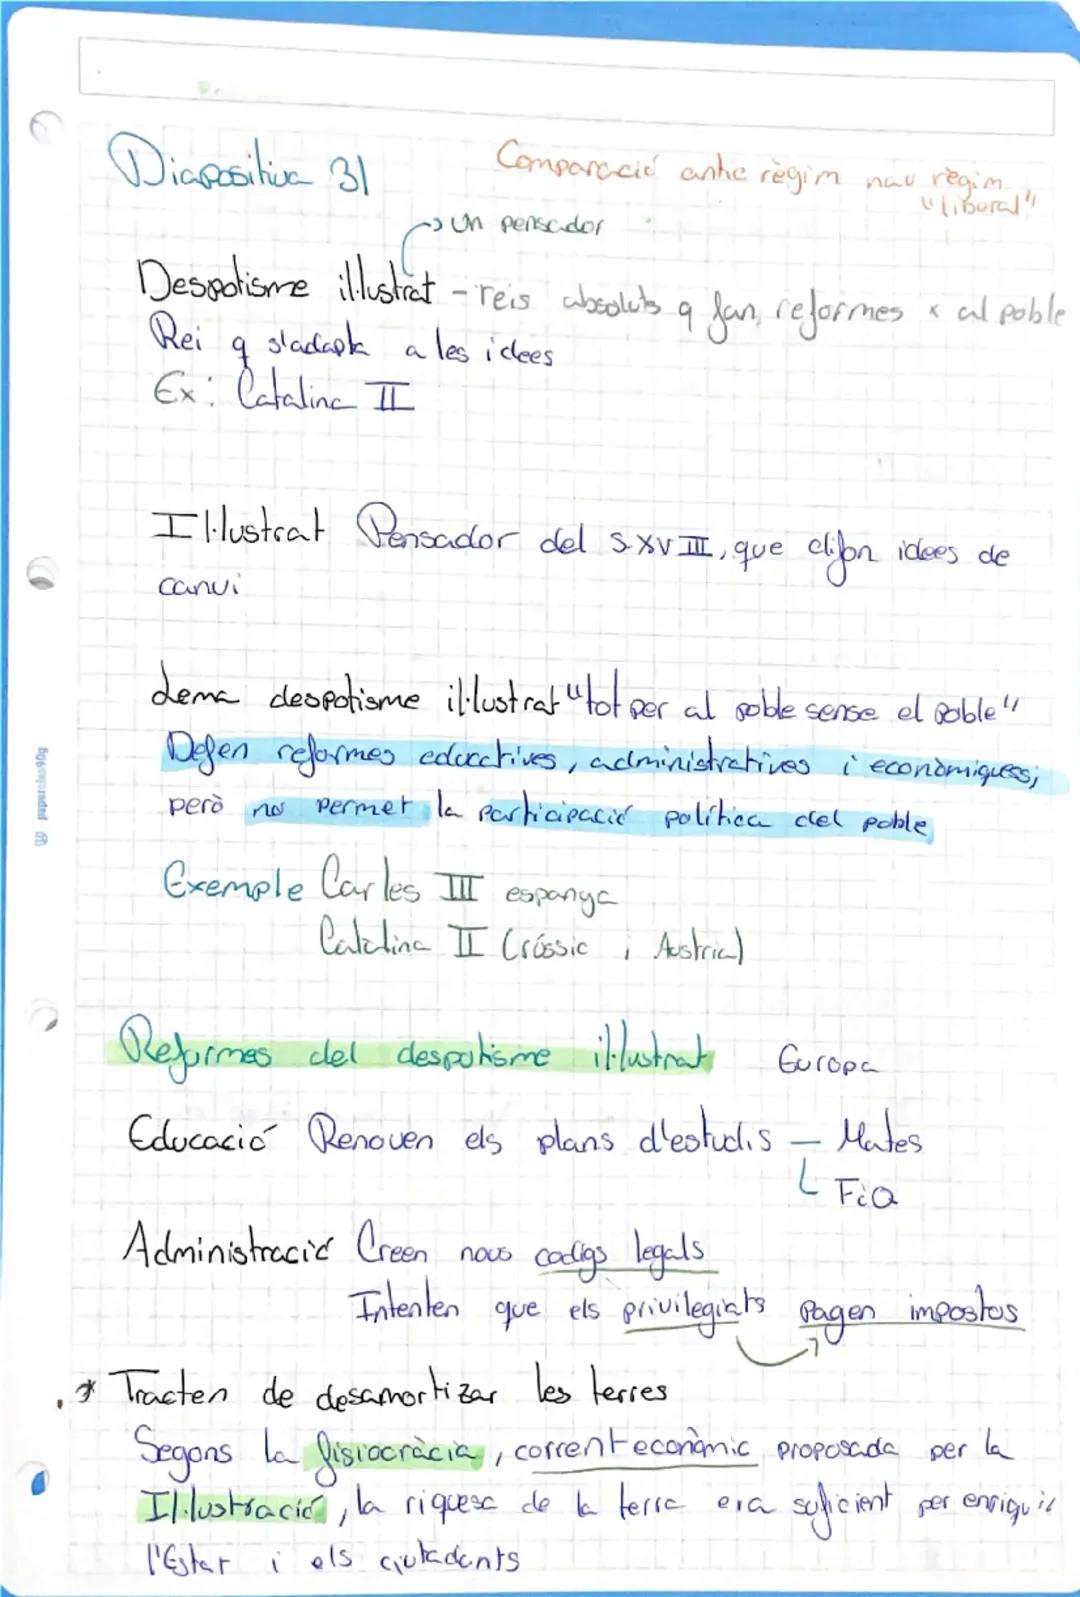 Diapositiva 31
Comparació antic règim nou règim
"liberal"
→ un pensador
Despotisme il·lustrat - reis absoluts q fan reformes x al poble
Rei q s'adapta a les idees
Ex: Catalina II
Il·lustrat Pensador del s.XVIII, que difon idees de
canvi
Lema despotisme il·lustrat "tot per al poble sense el poble"
Defen reformes educatives, administratives i econòmiques;
però no permet la participació política del poble
Exemple Carles III espanya
Catalina II (rússia i Austria)
Reformes del despotisme il·lustrat Europa
Educació Renoven els plans d'estudis — Mates
FiQ
Administració Creen nous codigs legals
Intenten que els privilegiats pagen impostos
* Tracten de desamortizar les terres
Segons la fisiocràcia, corrent econòmic proposada per la
Il·lustració, la riquesa de la terra era suficient per enriquir
l'Estat i els ciutadants